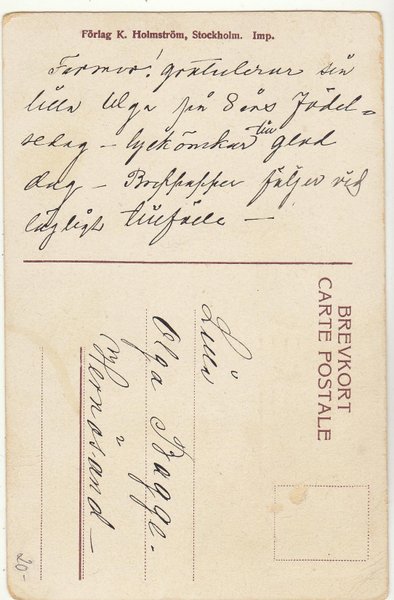 Förlag K. Holmström, Stockholm. Imp.
Farmor! gratulerar sin
lilla Olga på 8 års Födel=
sedag – lyckönskar till glad
dag – följer vid
lägligt tillfälle –
BREVKORT
CARTE POSTALE
Lilla
Olga Bagge.
Hernösand –
20-